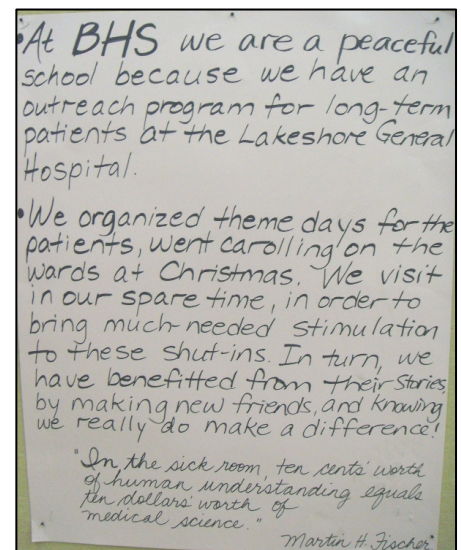 •At BHS we are a peaceful
school because we have an
outreach program for long-term
patients at the Lakeshore General
Hospital.
•We organized theme days for the
patients, went carolling on the
wards at Christmas. We visit
in our spare time, in order to
bring much-needed stimulation
to these shut-ins. In turn, we
have benefitted from their stories,
by making new friends, and knowing
we really do make a difference!
"In the sick room, ten cents' worth
of human understanding equals
ten dollars' worth of
medical science."
Martin H. Fischer